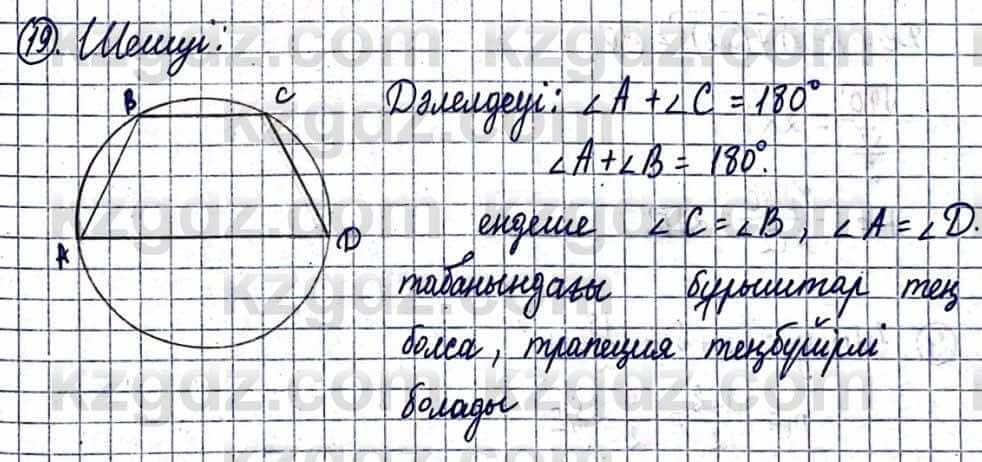 19. Шешуі:
B C
Дәлелдеуі: ∠A + ∠C = 180°
∠A + ∠B = 180°.
ендеше ∠C = ∠B, ∠A = ∠D.
A D
табанындағы бұрыштар тең
болса, трапеция теңбүйірлі
болады
kzgdz.com